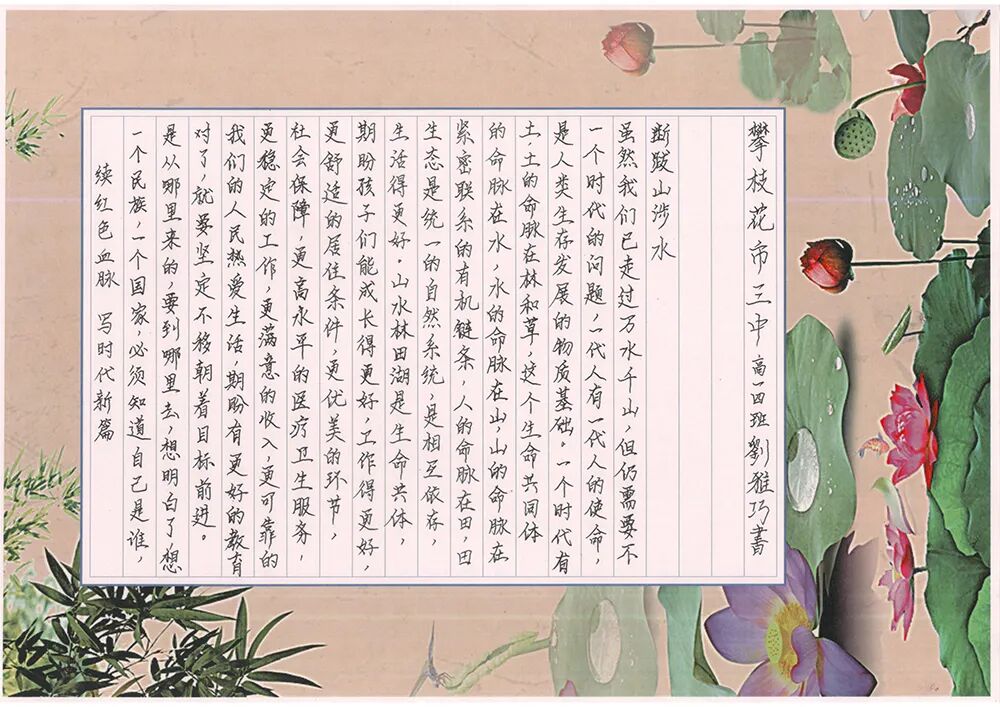 续红色血脉 写时代新篇
一个民族，一个国家，必须知道自己是谁，
是从哪里来的，要到哪里去，想明白了，想
对了，就要坚定不移朝着目标前进。
我们的人民热爱生活期盼有更好的教育
更稳定的工作，更满意的收入，更可靠的
社会保障，更高水平的医疗卫生服务，
更舒适的居住条件，更优美的环节，
期盼孩子们能成长得更好，工作得更好，
生活得更好。山水林田湖是生命共体，
生态是统一的自然系统，是相互依存，
紧密联系的有机链条，人的命脉在田，田
的命脉在水，水的命脉在山，山的命脉在
土，土的命脉在林和草，这个生命共同体
是人类生存发展的物质基础。一个时代有
一个时代的问题，一代人有一代人的使命，
虽然我们已走过万水千山，但仍需要不
断跋山涉水
攀枝花市三中高一四班劉雅巧書